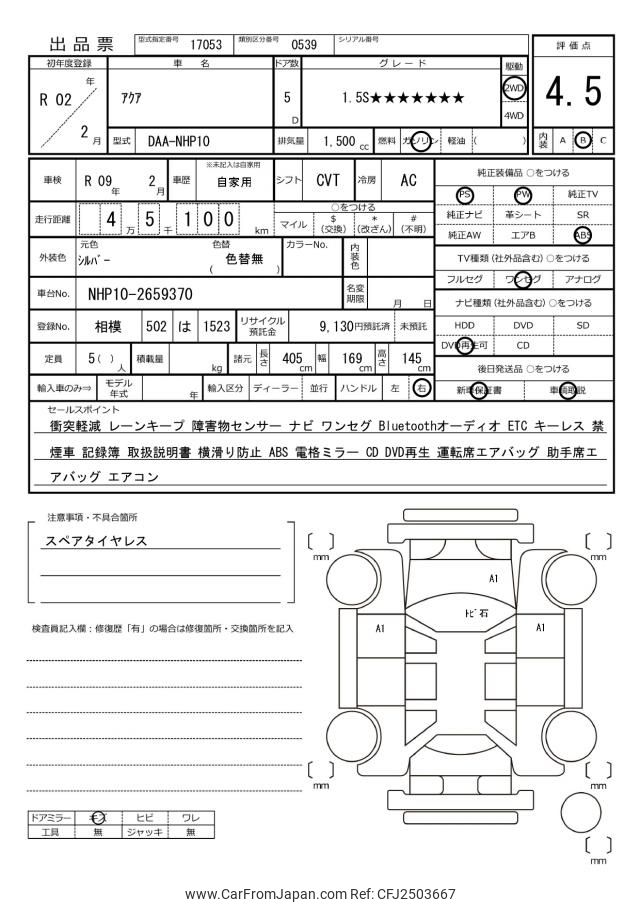 出品票 型式指定番号 17053 類別区分番号 0539 シリアル番号
評価点
4.5
内装 A B C
初年度登録 車名 ドア数 グレード 駆動
R 02 年 2 月
アクア 5 D 1.5S★★★★★★★ 2WD
4WD
型式 DAA-NHP10 排気量 1,500 cc 燃料 ガソリン 軽油 ( )
車検 R 09 年 2 月 車歴 ※未記入は自家用
自家用 シフト CVT 冷房 AC
走行距離 4 万 5 千 1 0 0 km
○をつける
マイル $(交換) *(改ざん) #(不明)
外装色 元色 シルバー 色替 ( 色替無 ) カラーNo. 内装色
車台No. NHP10-2659370 名変期限 月 日
登録No. 相模 502 は 1523 リサイクル預託金 9,130円預託済 未預託
定員 5 ( ) 人 積載量 kg 諸元 長さ 405 cm 幅 169 cm 高さ 145 cm
輸入車のみ⇒ モデル年式 年 輸入区分 ディーラー 並行 ハンドル 左 右
純正装備品 ○をつける
PS PW 純正TV
純正ナビ 革シート SR
純正AW エアB ABS
TV種類 (社外品含む) ○をつける
フルセグ ワンセグ アナログ
ナビ種類 (社外品含む) ○をつける
HDD DVD SD
DVD再生可 CD
後日発送品 ○をつける
新車保証書 車輌取説
セールスポイント
衝突軽減 レーンキープ 障害物センサー ナビ ワンセグ Bluetoothオーディオ ETC キーレス 禁
煙車 記録簿 取扱説明書 横滑り防止 ABS 電格ミラー CD DVD再生 運転席エアバッグ 助手席エ
アバッグ エアコン
注意事項・不具合箇所
スペアタイヤレス
検査員記入欄：修復歴「有」の場合は修復箇所・交換箇所を記入
mm
mm
A1
トビ石
A1
A1
mm
mm
mm
ドアミラー キズ ヒビ ワレ
工具 無 ジャッキ 無
www.CarFromJapan.com Ref: CFJ2503667